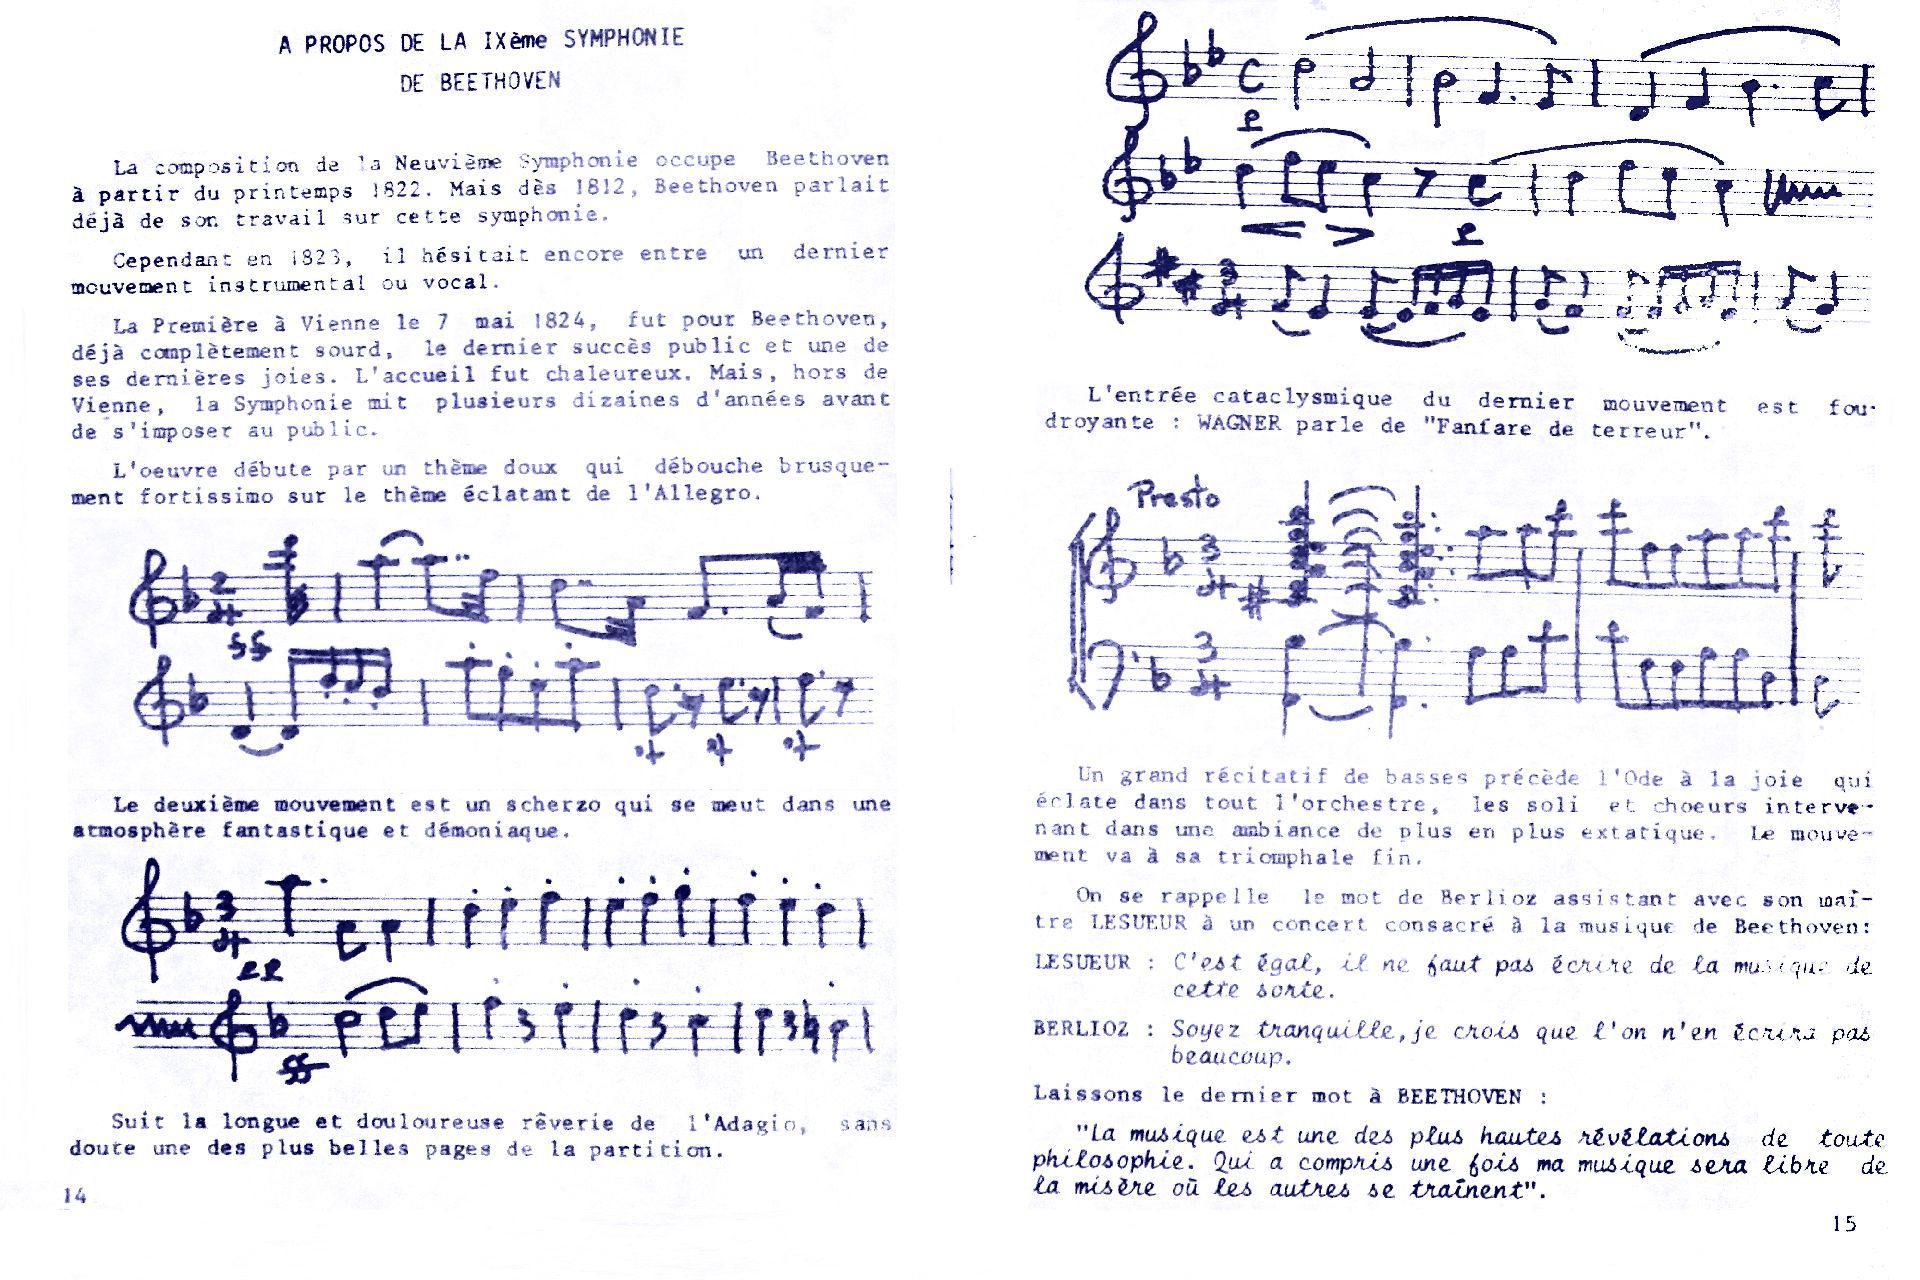 A PROPOS DE LA IXème SYMPHONIE
DE BEETHOVEN
La composition de la Neuvième Symphonie occupe Beethoven
à partir du printemps 1822. Mais dès 1812, Beethoven parlait
déjà de son travail sur cette symphonie.
Cependant en 1823, il hésitait encore entre un dernier
mouvement instrumental ou vocal.
La Première à Vienne le 7 mai 1824, fut pour Beethoven,
déjà complètement sourd, le dernier succès public et une de
ses dernières joies. L'accueil fut chaleureux. Mais, hors de
Vienne, la Symphonie mit plusieurs dizaines d'années avant
de s'imposer au public.
L'oeuvre débute par un thème doux qui débouche brusque-
ment fortissimo sur le thème éclatant de l'Allegro.
2
4
ff
Le deuxième mouvement est un scherzo qui se meut dans une
atmosphère fantastique et démoniaque.
3
4
pp
ff
Suit la longue et douloureuse rêverie de l'Adagio, sans
doute une des plus belles pages de la partition.
14
C
p
p
3
4
L'entrée cataclysmique du dernier mouvement est fou-
droyante : WAGNER parle de "Fanfare de terreur".
Presto
3
4
3
4
Un grand récitatif de basses précède l'Ode à la joie qui
éclate dans tout l'orchestre, les soli et choeurs interve-
nant dans une ambiance de plus en plus extatique. Le mouve-
ment va à sa triomphale fin.
On se rappelle le mot de Berlioz assistant avec son maî-
tre LESUEUR à un concert consacré à la musique de Beethoven:
LESUEUR : C'est égal, il ne faut pas écrire de la musique de
cette sorte.
BERLIOZ : Soyez tranquille, je crois que l'on n'en écrira pas
beaucoup.
Laissons le dernier mot à BEETHOVEN :
"La musique est une des plus hautes révélations de toute
philosophie. Qui a compris une fois ma musique sera libre de
la misère où les autres se traînent".
15